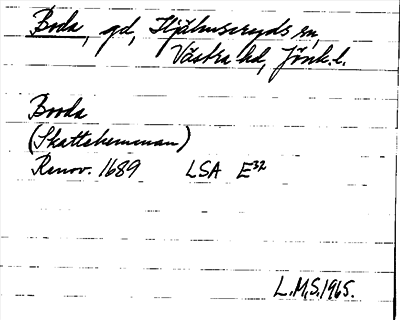 Boda, gd, Stjälhuseryds sn,
Västra hd, Jönk. l.
Booda
(Skattehemman)
Renov. 1689 LSA E³²
L.M.S. 1965.